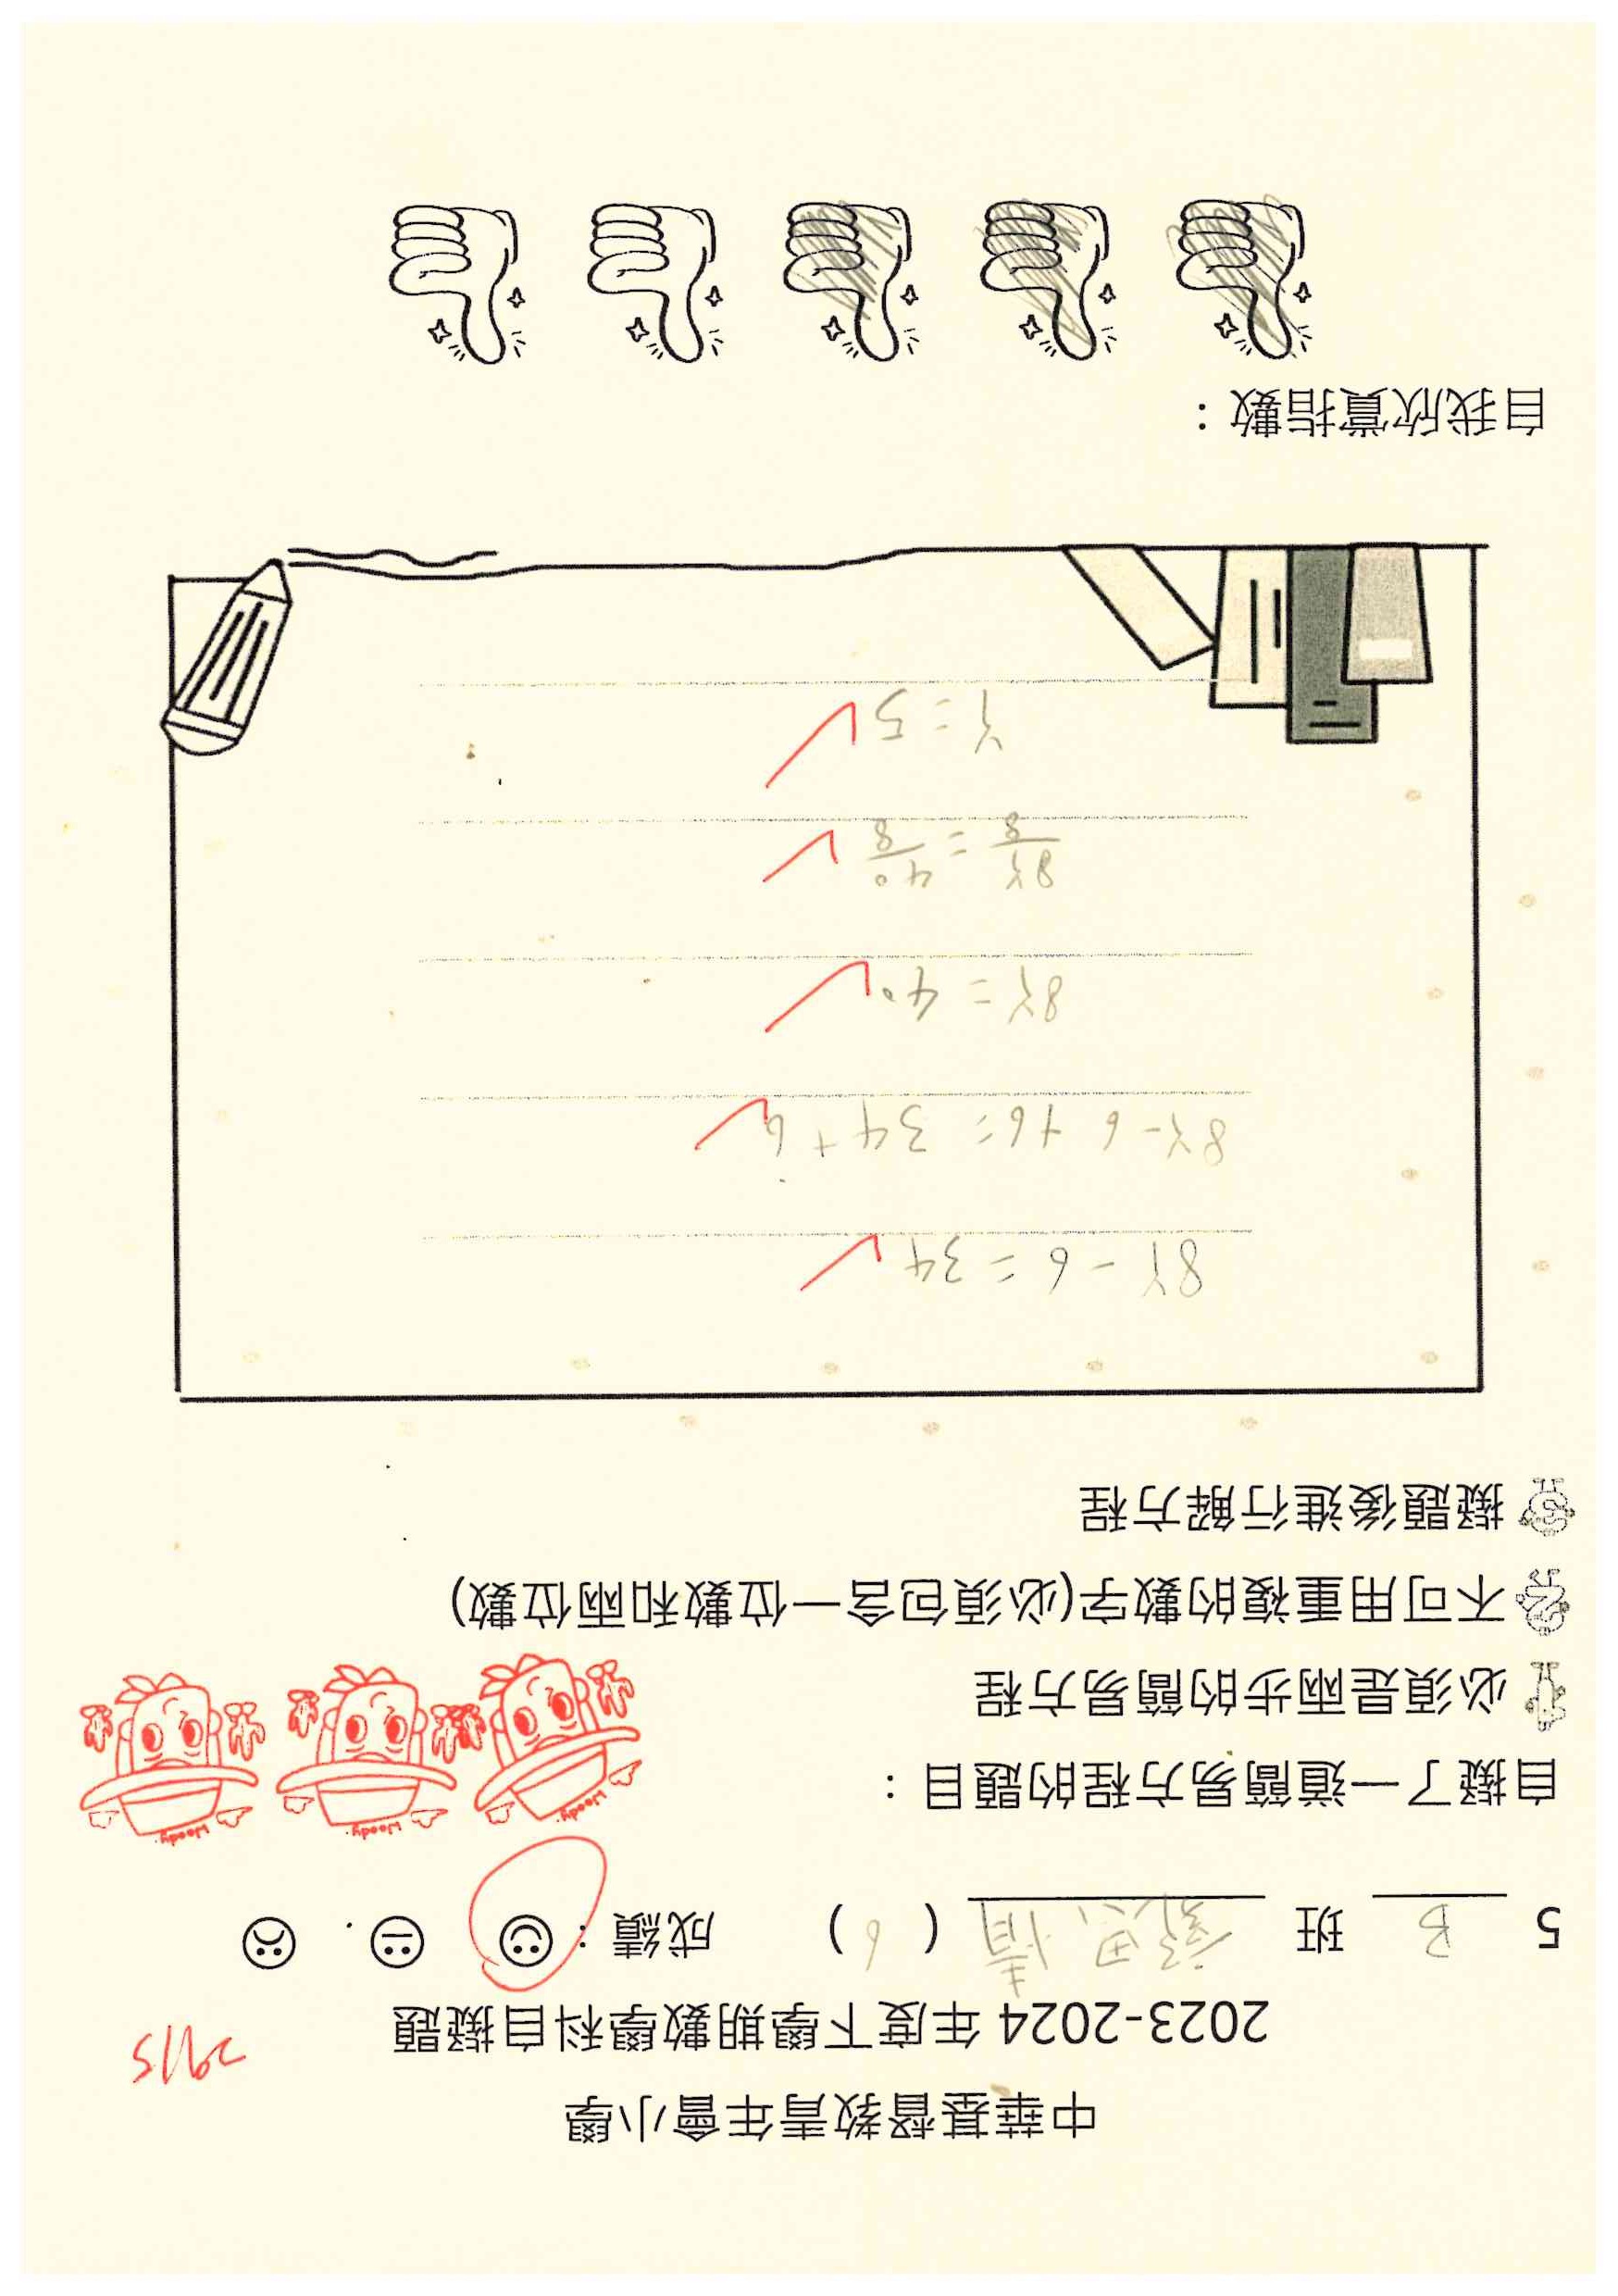 中華基督教青年會小學
2023-2024 年度下學期數學科自擬題
29/5
5 B 班 思情 ( 6 ) 成績：
自擬了一道簡易方程的題目：
必須是兩步的簡易方程
不可用重複的數字(必須包含一位數和兩位數)
擬題後進行解方程
Woody. Woody. Woody.
8Y - 6 = 34
8Y - 6 + 6 = 34 + 6
8Y = 40
8Y/8 = 40/8
Y = 5
自我欣賞指數：